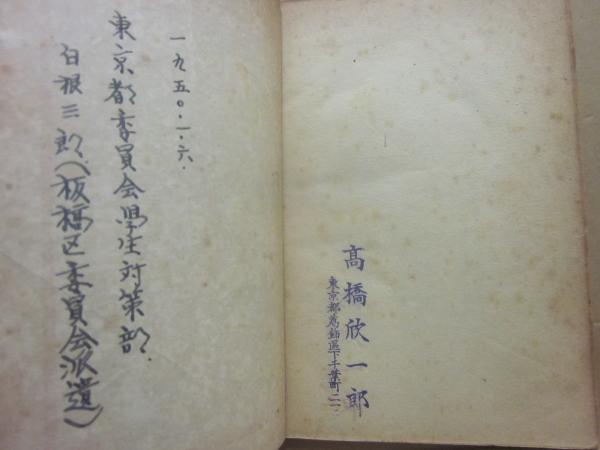 一九五〇・一・六.
東京都委員会学生対策部.
白根三郎(板橋区委員会派遣)
高橋欣一郎
東京都葛飾區下千葉町二